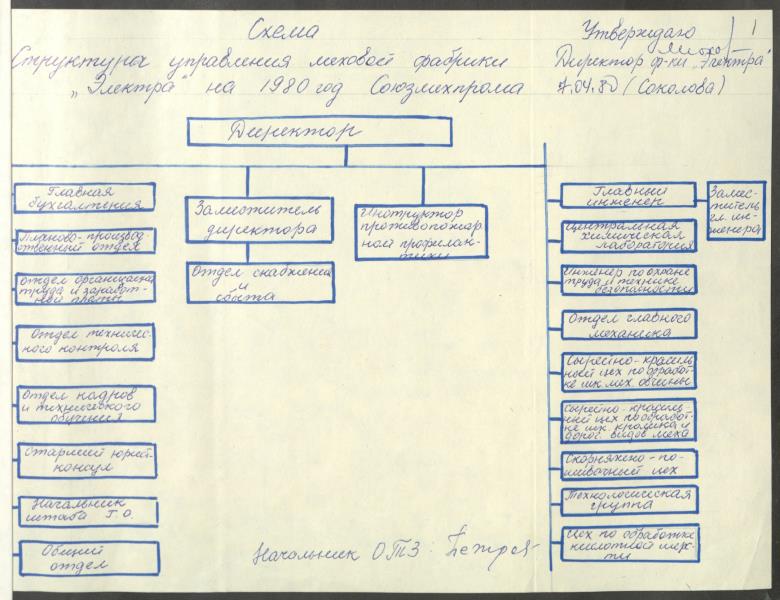 Схема
Структура управления меховой фабрики
„Электра“ на 1980 год Союзмехпрома
Утверждаю
1
Директор ф-ки „Электра“
7.04.80 (Соколова)
Директор
Главная
бухгалтерия
Планово-производ-
ственный отдел
Отдел организации
труда и заработ-
ной платы
Отдел техничес-
кого контроля
Отдел кадров
и технического
обучения
Старший юрис-
консул
Начальник
штаба Г.О.
Общий
отдел
Заместитель
директора
Отдел снабжения
и
сбыта
Инструктор
противопожар
ной профилак-
тики
Главный
инженер
Замес-
титель
гл. ин-
женера
Центральная
химическая
лаборатория
Инженер по охране
труда и технике
безопасности
Отдел главного
механика
Сырейно-красиль
ный цех по обработ-
ке шк. мех. овчины
Сырейно-красиль
ный цех по обработ-
ке шк. кролика и
дорог. видов меха
Скорняжно-по-
шивочный цех
Технологическая
группа
Цех по обработке
кислотной шерс-
ти
Начальник ОТЗ: